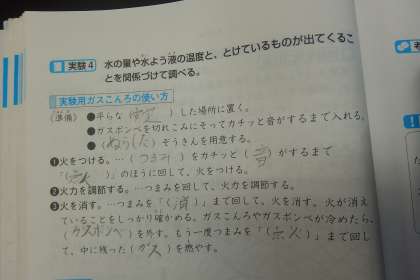 実験4 水の量や水よう液の温度と、とけているものが出てくるこ
とを関係づけて調べる。
実験用ガスこんろの使い方
(準備) ●平らな(安定)した場所に置く。
●ガスボンベを切れこみにそってカチッと音がするまで入れる。
●(ぬらした)ぞうきんを用意する。
❶火をつける。…(つまみ)をカチッと(音)がするまで
「(点火)」のほうに回して、火をつける。
❷火力を調節する。…つまみを回して、火力を調節する。
❸火を消す。…つまみを「(消)」まで回して、火を消す。火が消え
ていることをしっかり確かめる。ガスこんろやガスボンベが冷めたら、
(ガスボンベ)を外す。もう一度つまみを「(点火)」まで回し
て、中に残った(ガス)を燃やす。